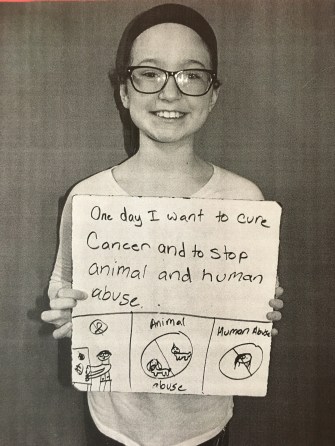 One day I want to cure
Cancer and to stop
animal and human
abuse...
Animal
abuse
Human Abuse